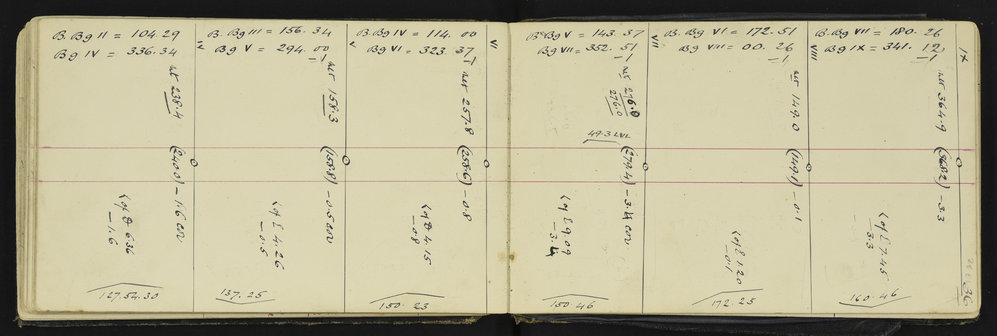 B. Bg II = 104.29
Bg IV = 336.34
net 238.4
(240.0) - 1.6 cor
Cof D 6.36
- 1.6
127.54.30
V
B. Bg III = 156.34
Bg V = 294.00
- 1
net 158.3
(158.8) - 0.5 cor
Cof I 4.26
- 0.5
137.25
V
B. Bg IV = 114.00
Bg VI = 323.37
- 1
net 257.8
(258.6) - 0.8
Cof D 4.15
- 0.8
150.23
VI
B. Bg V = 143.37
Bg VII = 352.51
- 1
net 276.0
276.0
49.3 LVL
(279.4) - 3.4 cor
Cof I 9.09
- 3.4
150.46
VII
B. Bg VI = 172.51
Bg VIII = 00.26
- 1
net 149.0
(149.1) - 0.1
Cof I 1.20
- 0.1
172.25
VIII
B. Bg VII = 180.26
Bg IX = 341.12
- 1
net 364.9
(368.2) - 3.3
Cof I 7.45
- 3.3
160.46
IX